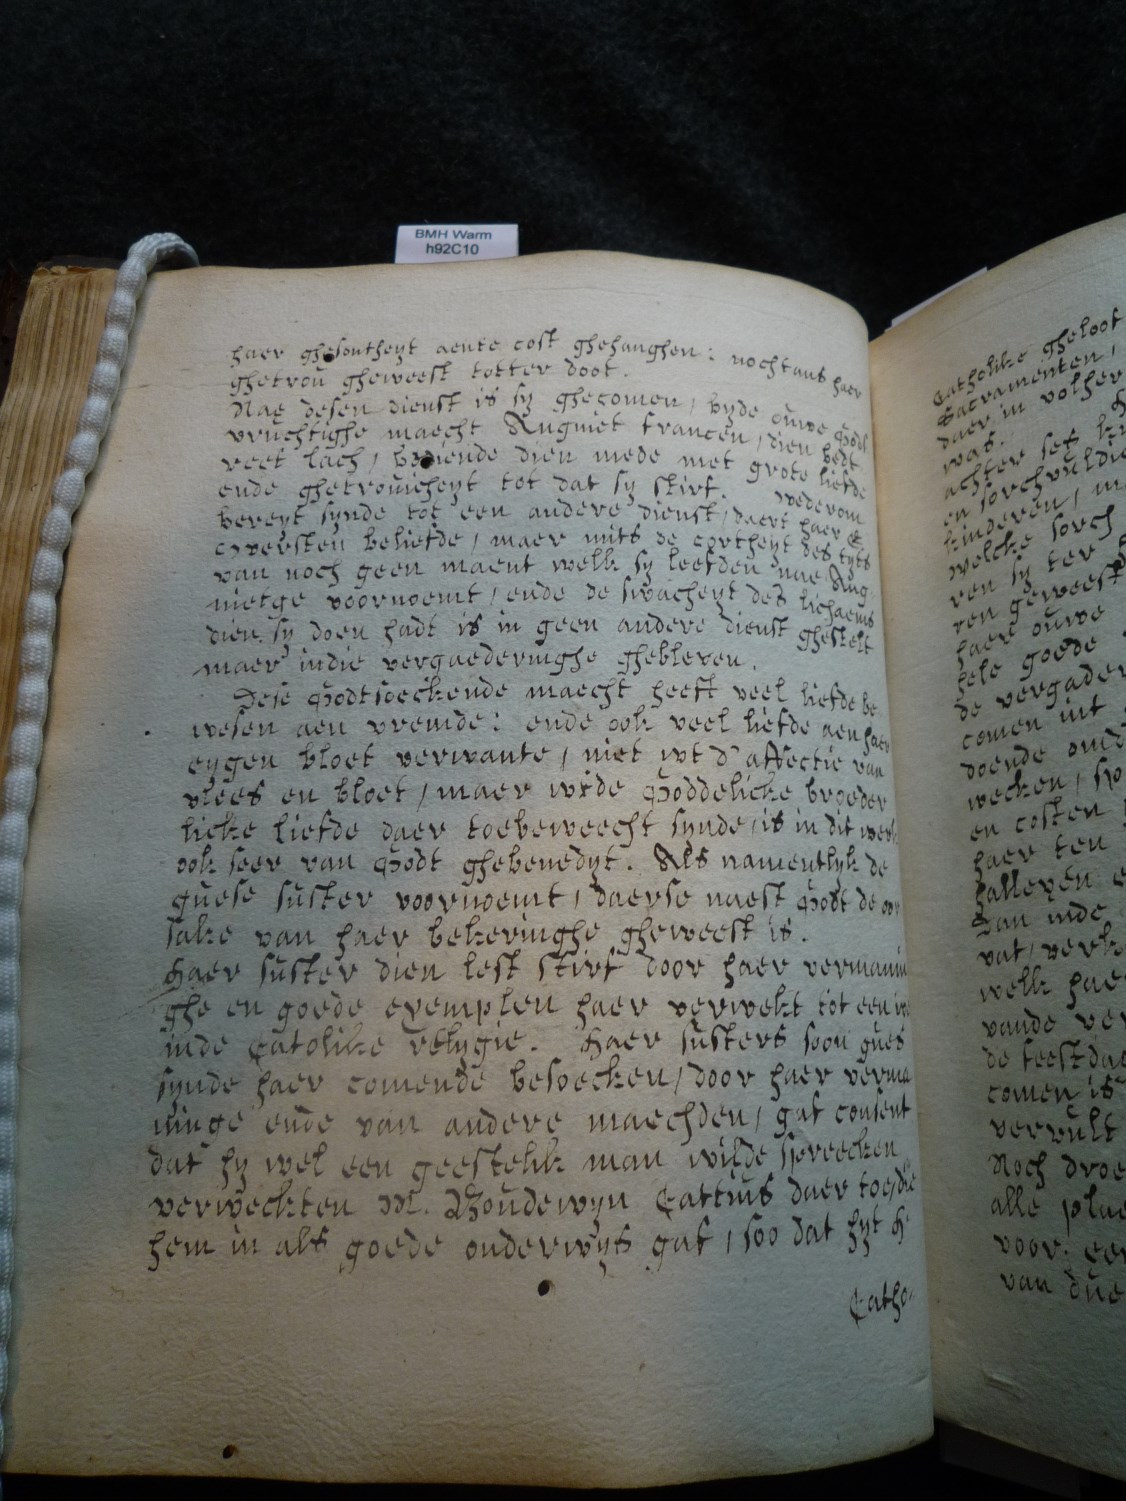 BMH Warm
h92C10
haer ghesontheyt aente cost ghehanghen: nochtans haer
ghetrou gheweest totter doot.
Nae desen dienst is sy ghecomen, byde ouwe Godt
vruchtighe maecht Angniet francen, dien bedt
reet lach, bediende dien mede met grote liefde
ende ghetrouicheyt tot dat sy stirf. wederom
bereyt synde tot een andere dienst, daert haer E
Oversten beliefde, maer mits de cortheyt des tyts
van noch geen maent welk sy leefden nae Ang
nietge voornoemt, ende de swacheyt des lichaems
dien sy doen hadt is in geen andere dienst ghestelt
maer indie vergaederinghe ghebleven.
Dese Godtsoeckende maecht heeft veel liefde be
wesen aen vremde: ende ook veel liefde aen haer
eygen bloet verwante, niet wt d'affectie van
vlees en bloet, maer wtde Goddelicke broeder
licke liefde daer toebeweecht synde, is in dit werk
ook seer van Godt ghebenedyt. Als namentlyk de
guese suster voornoemt, daerse naest Godt de oor
sake van haer bekeringhe gheweest is.
Haer suster dien lest stirf door haer vermanin
ghe en goede exemplen haer verwekt tot een
inde Catolike relygie. Haer susters soon gues
synde haer comende besoecken, door haer verma
ninge ende van andere maechden, gaf consent
dat hy wel een geestelik man wilde spreecken
verweckten M. Boudewyn Cattius daer toe, die
hem in als goede onderwys gaf, soo dat hyt H
Catho-
Catholike gheloof
Sacramenten,
daer in volher
was.
achter set
en sorchvuldi
kinderen,
welcke sorch
ren sy ter
ren geweest
haer ouwe
hele goede
de vergader
comen int
doende
wecken,
en costen
haer ten
halleven
Van inde
vat, verk
welk haer
vande ver
de feestdag
comen is
vervult
Noch droe
alle plae
voor. een
van due